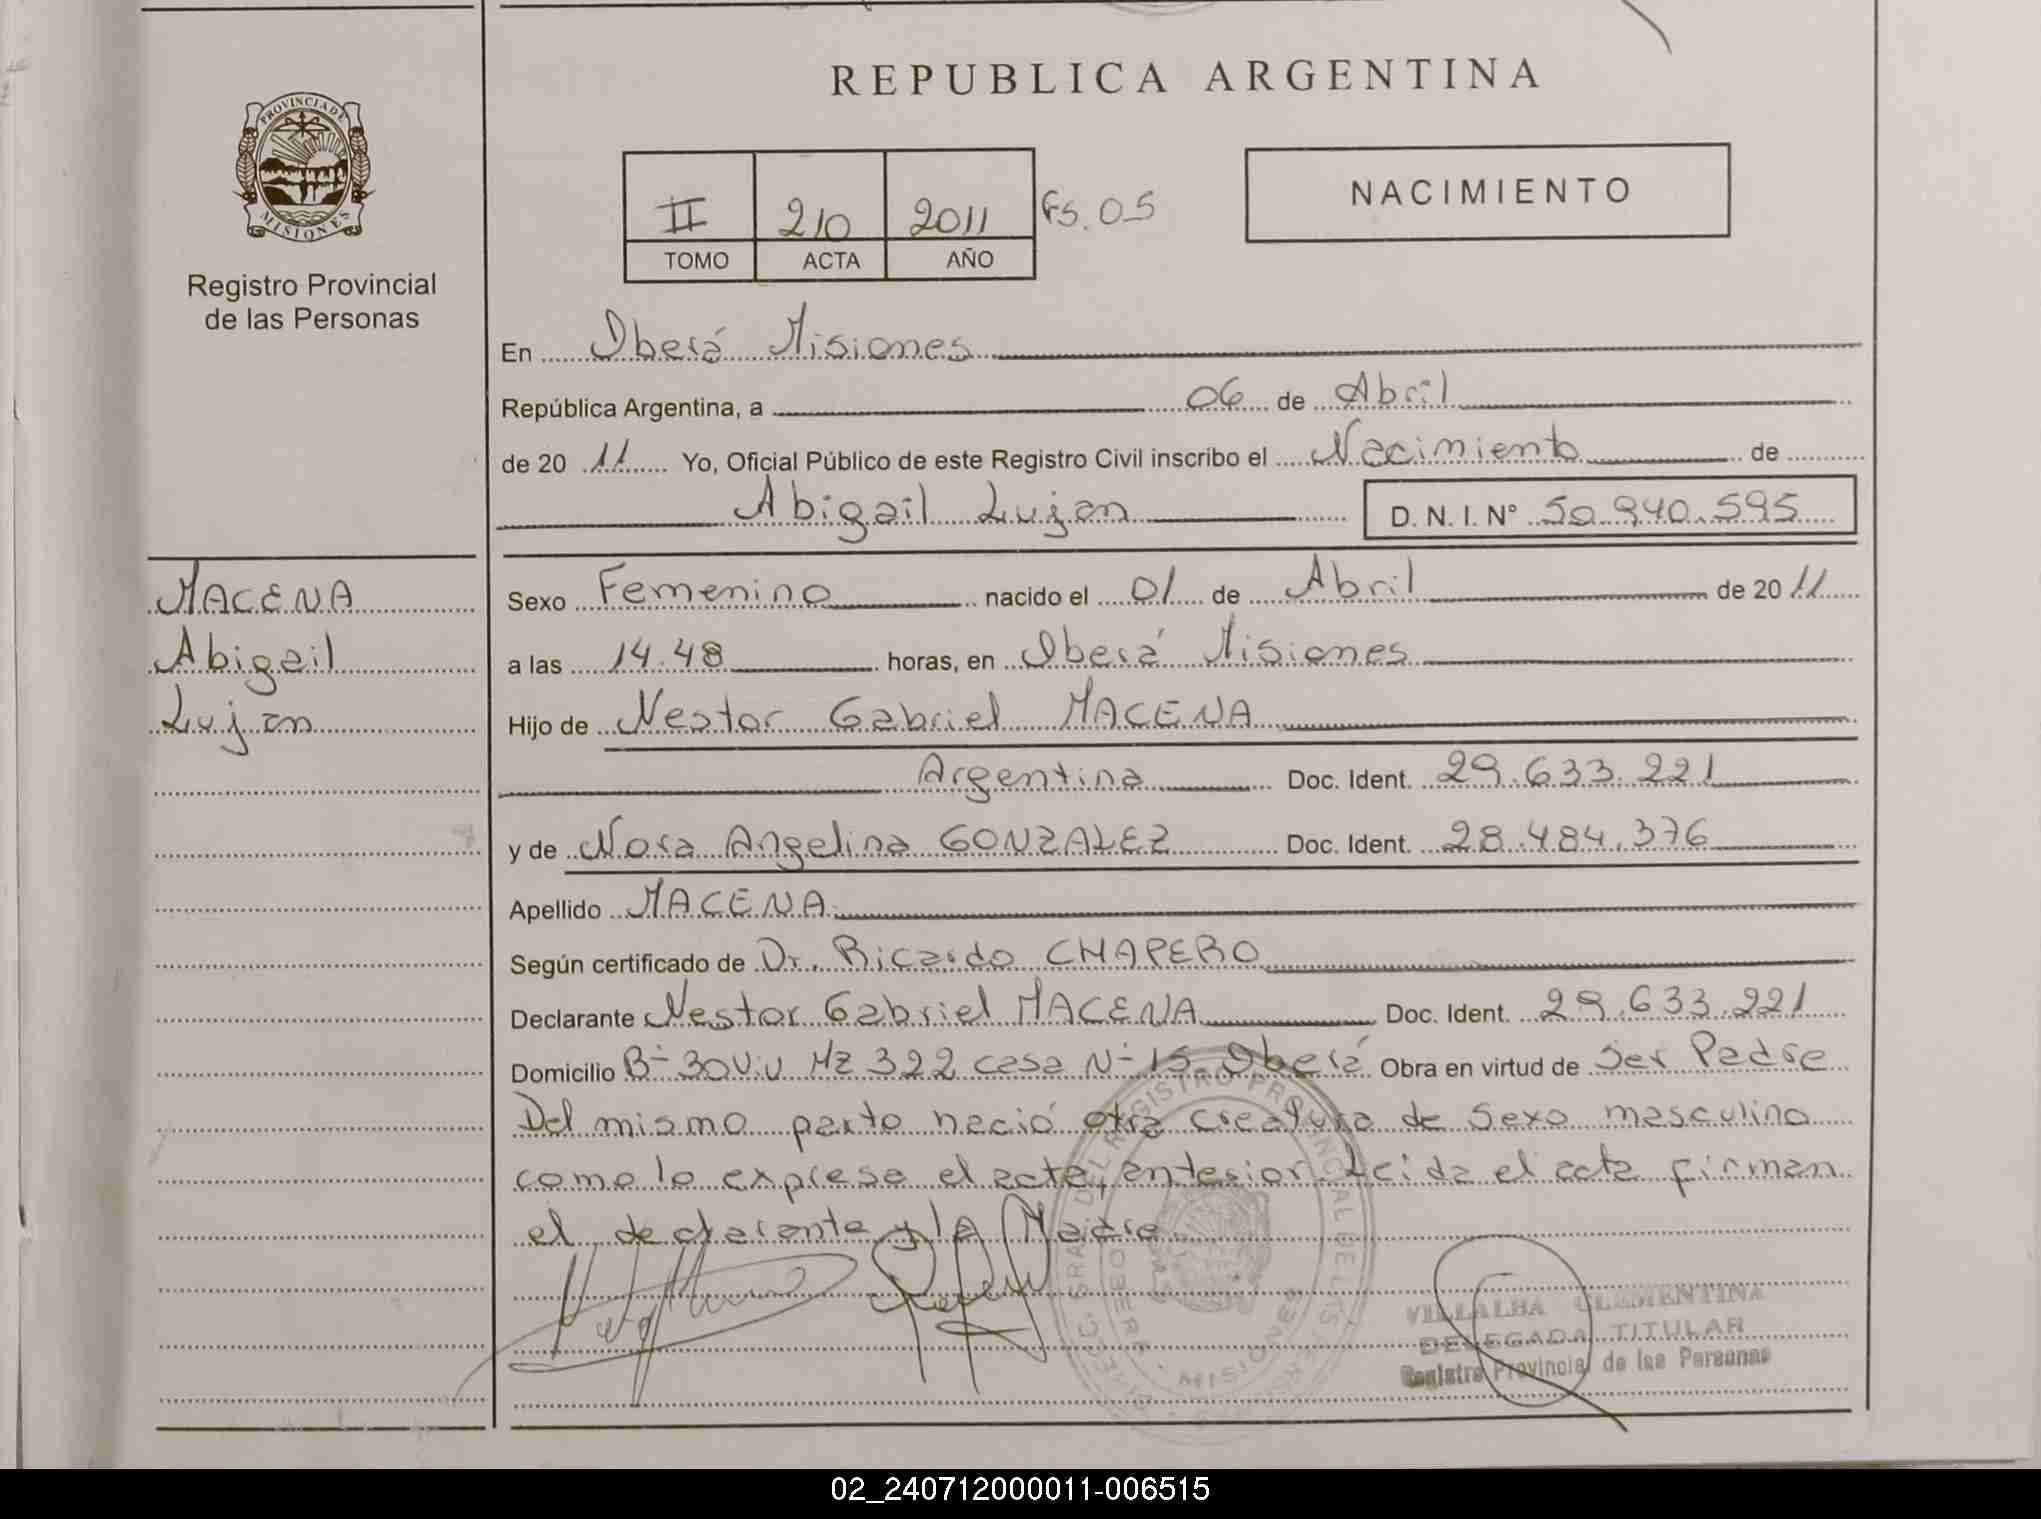 REPUBLICA ARGENTINA
PROVINCIA DE
MISIONES
Registro Provincial
de las Personas
II 210 2011 Fs. 05
TOMO ACTA AÑO
NACIMIENTO
En Oberá Misiones
República Argentina, a 06 de Abril
de 20 11 Yo, Oficial Público de este Registro Civil inscribo el Nacimiento de
Abigail Lujan D. N. I. N° 50.940.595
MACENA
Abigail
Lujan
Sexo Femenino nacido el 01 de Abril de 20 11
a las 14.48 horas, en Oberá Misiones
Hijo de Nestor Gabriel MACENA
Argentina Doc. Ident. 29.633.221
y de Nora Angelina GONZALEZ Doc. Ident. 28.484.376
Apellido MACENA
Según certificado de Dr. Ricardo CHAPERO
Declarante Nestor Gabriel MACENA Doc. Ident. 29.633.221
Domicilio B- 30 Viv Mz 322 casa N- 15. Oberá Obra en virtud de Ser Padre
Del mismo parto nació otra creatura de sexo masculino
como lo expresa el acta, anterior Leida el acta firman
el declarante y la Madre
VILLALBA CLEMENTINA
DELEGADA TITULAR
Registro Provincial de las Personas
02_240712000011-006515